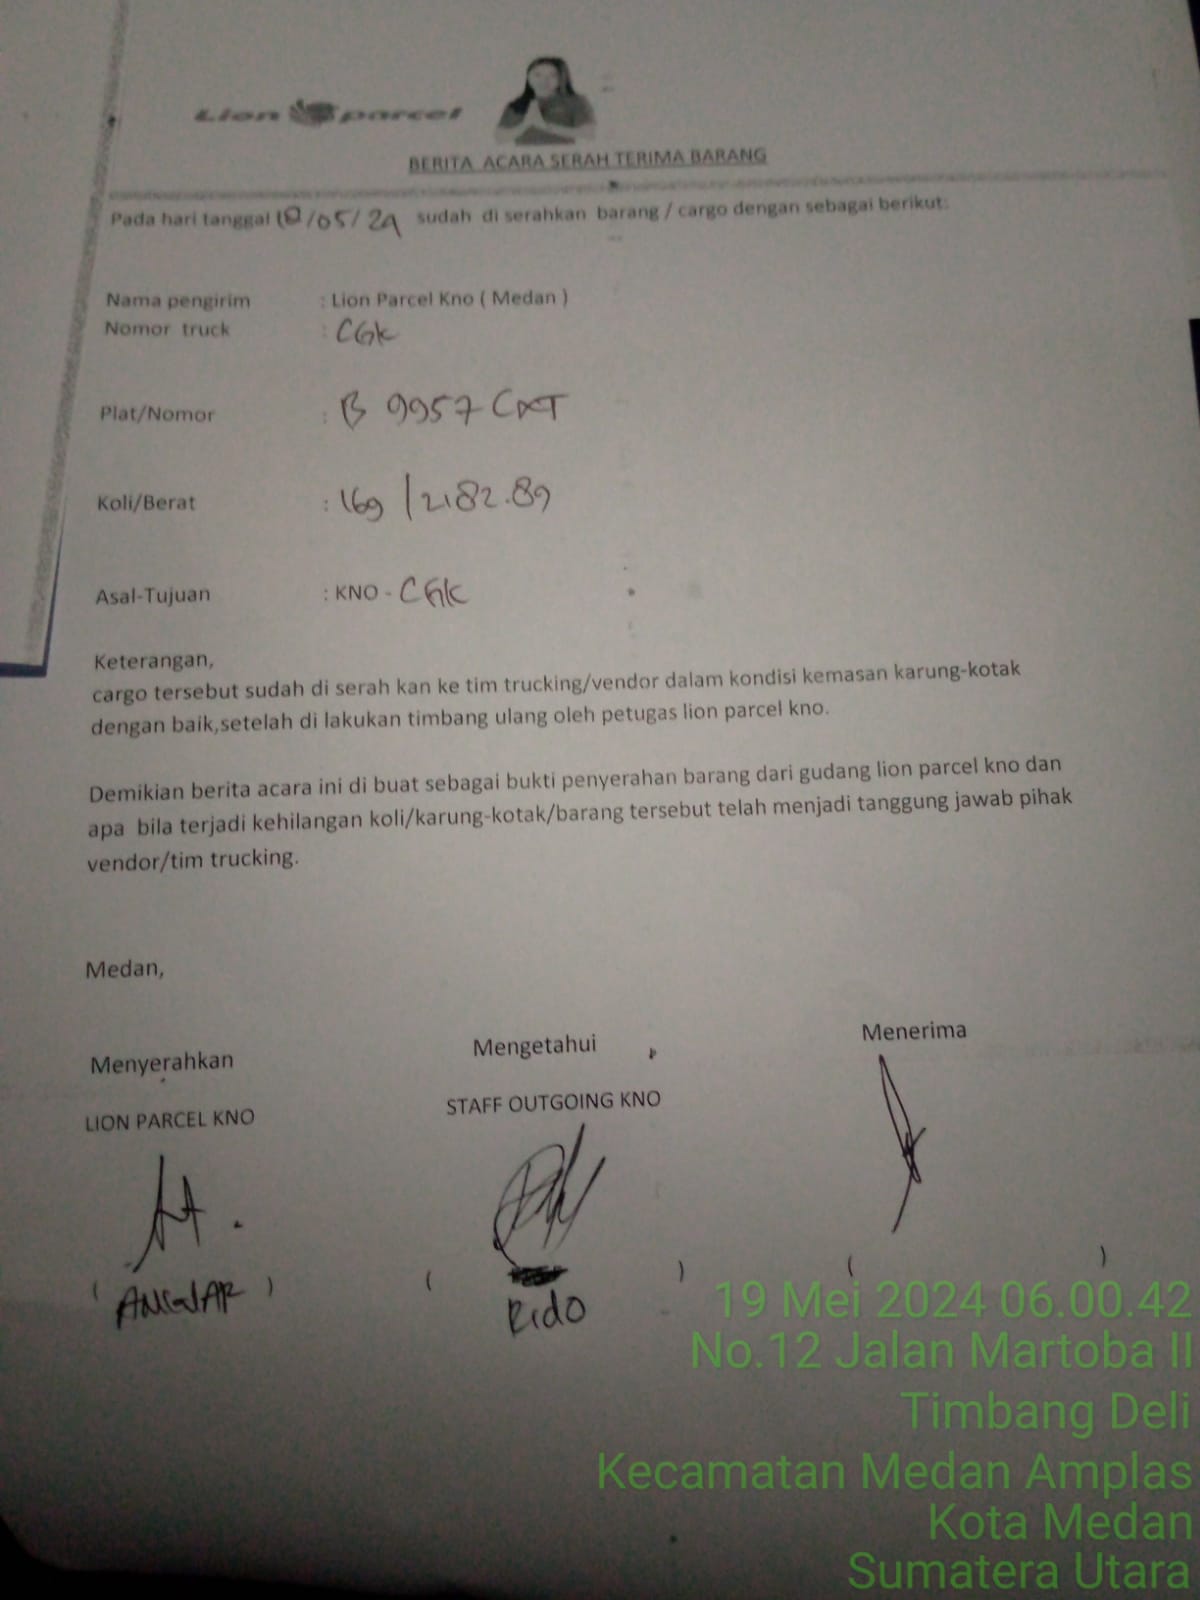 Lion parcel
BERITA ACARA SERAH TERIMA BARANG
Pada hari tanggal 18/05/24 sudah di serahkan barang / cargo dengan sebagai berikut:
Nama pengirim : Lion Parcel Kno ( Medan )
Nomor truck : CGK
Plat/Nomor : B 9957 CXT
Koli/Berat : 169 / 2182.89
Asal-Tujuan : KNO - CGK
Keterangan,
cargo tersebut sudah di serah kan ke tim trucking/vendor dalam kondisi kemasan karung-kotak
dengan baik,setelah di lakukan timbang ulang oleh petugas lion parcel kno.
Demikian berita acara ini di buat sebagai bukti penyerahan barang dari gudang lion parcel kno dan
apa bila terjadi kehilangan koli/karung-kotak/barang tersebut telah menjadi tanggung jawab pihak
vendor/tim trucking.
Medan,
Menyerahkan Mengetahui Menerima
LION PARCEL KNO STAFF OUTGOING KNO
( ANGGAR ) ( ) ( )
Rido
19 Mei 2024 06.00.42
No.12 Jalan Martoba II
Timbang Deli
Kecamatan Medan Amplas
Kota Medan
Sumatera Utara